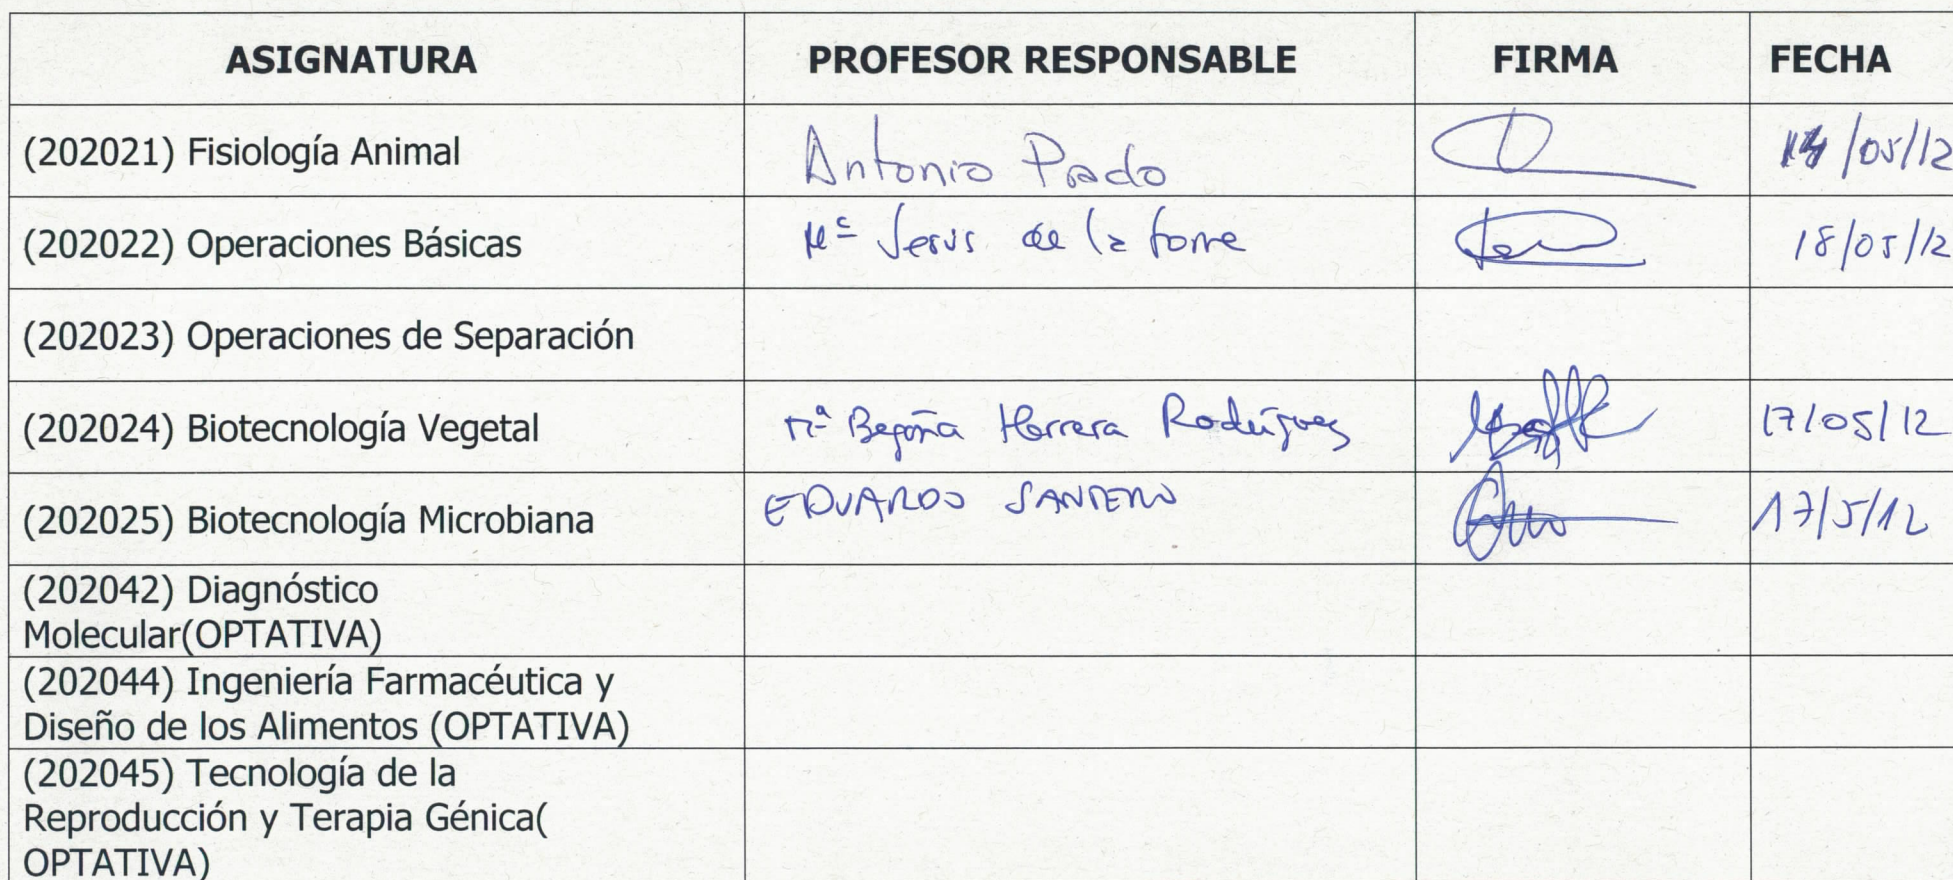 ASIGNATURA PROFESOR RESPONSABLE FIRMA FECHA
(202021) Fisiología Animal Antonio Prado /05/12
(202022) Operaciones Básicas Mª Jesus de la Torre 18/05/12
(202023) Operaciones de Separación
(202024) Biotecnología Vegetal Mª Begoña Herrera Rodríguez 17/05/12
(202025) Biotecnología Microbiana EDUARDO SANTERO 17/5/12
(202042) Diagnóstico
Molecular(OPTATIVA)
(202044) Ingeniería Farmacéutica y
Diseño de los Alimentos (OPTATIVA)
(202045) Tecnología de la
Reproducción y Terapia Génica(
OPTATIVA)